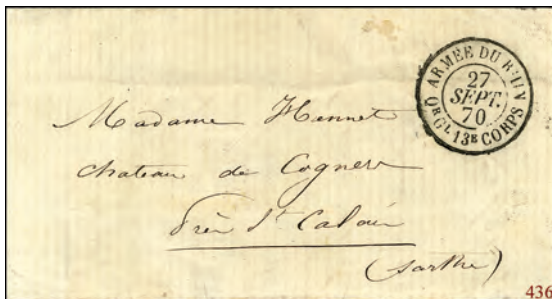 ARMÉE DU RHIN
27
SEPT.
70
Q R GL 13E CORPS
Madame Hennet
chateau de Cogners
Près St Calais
(Sarthe)
436